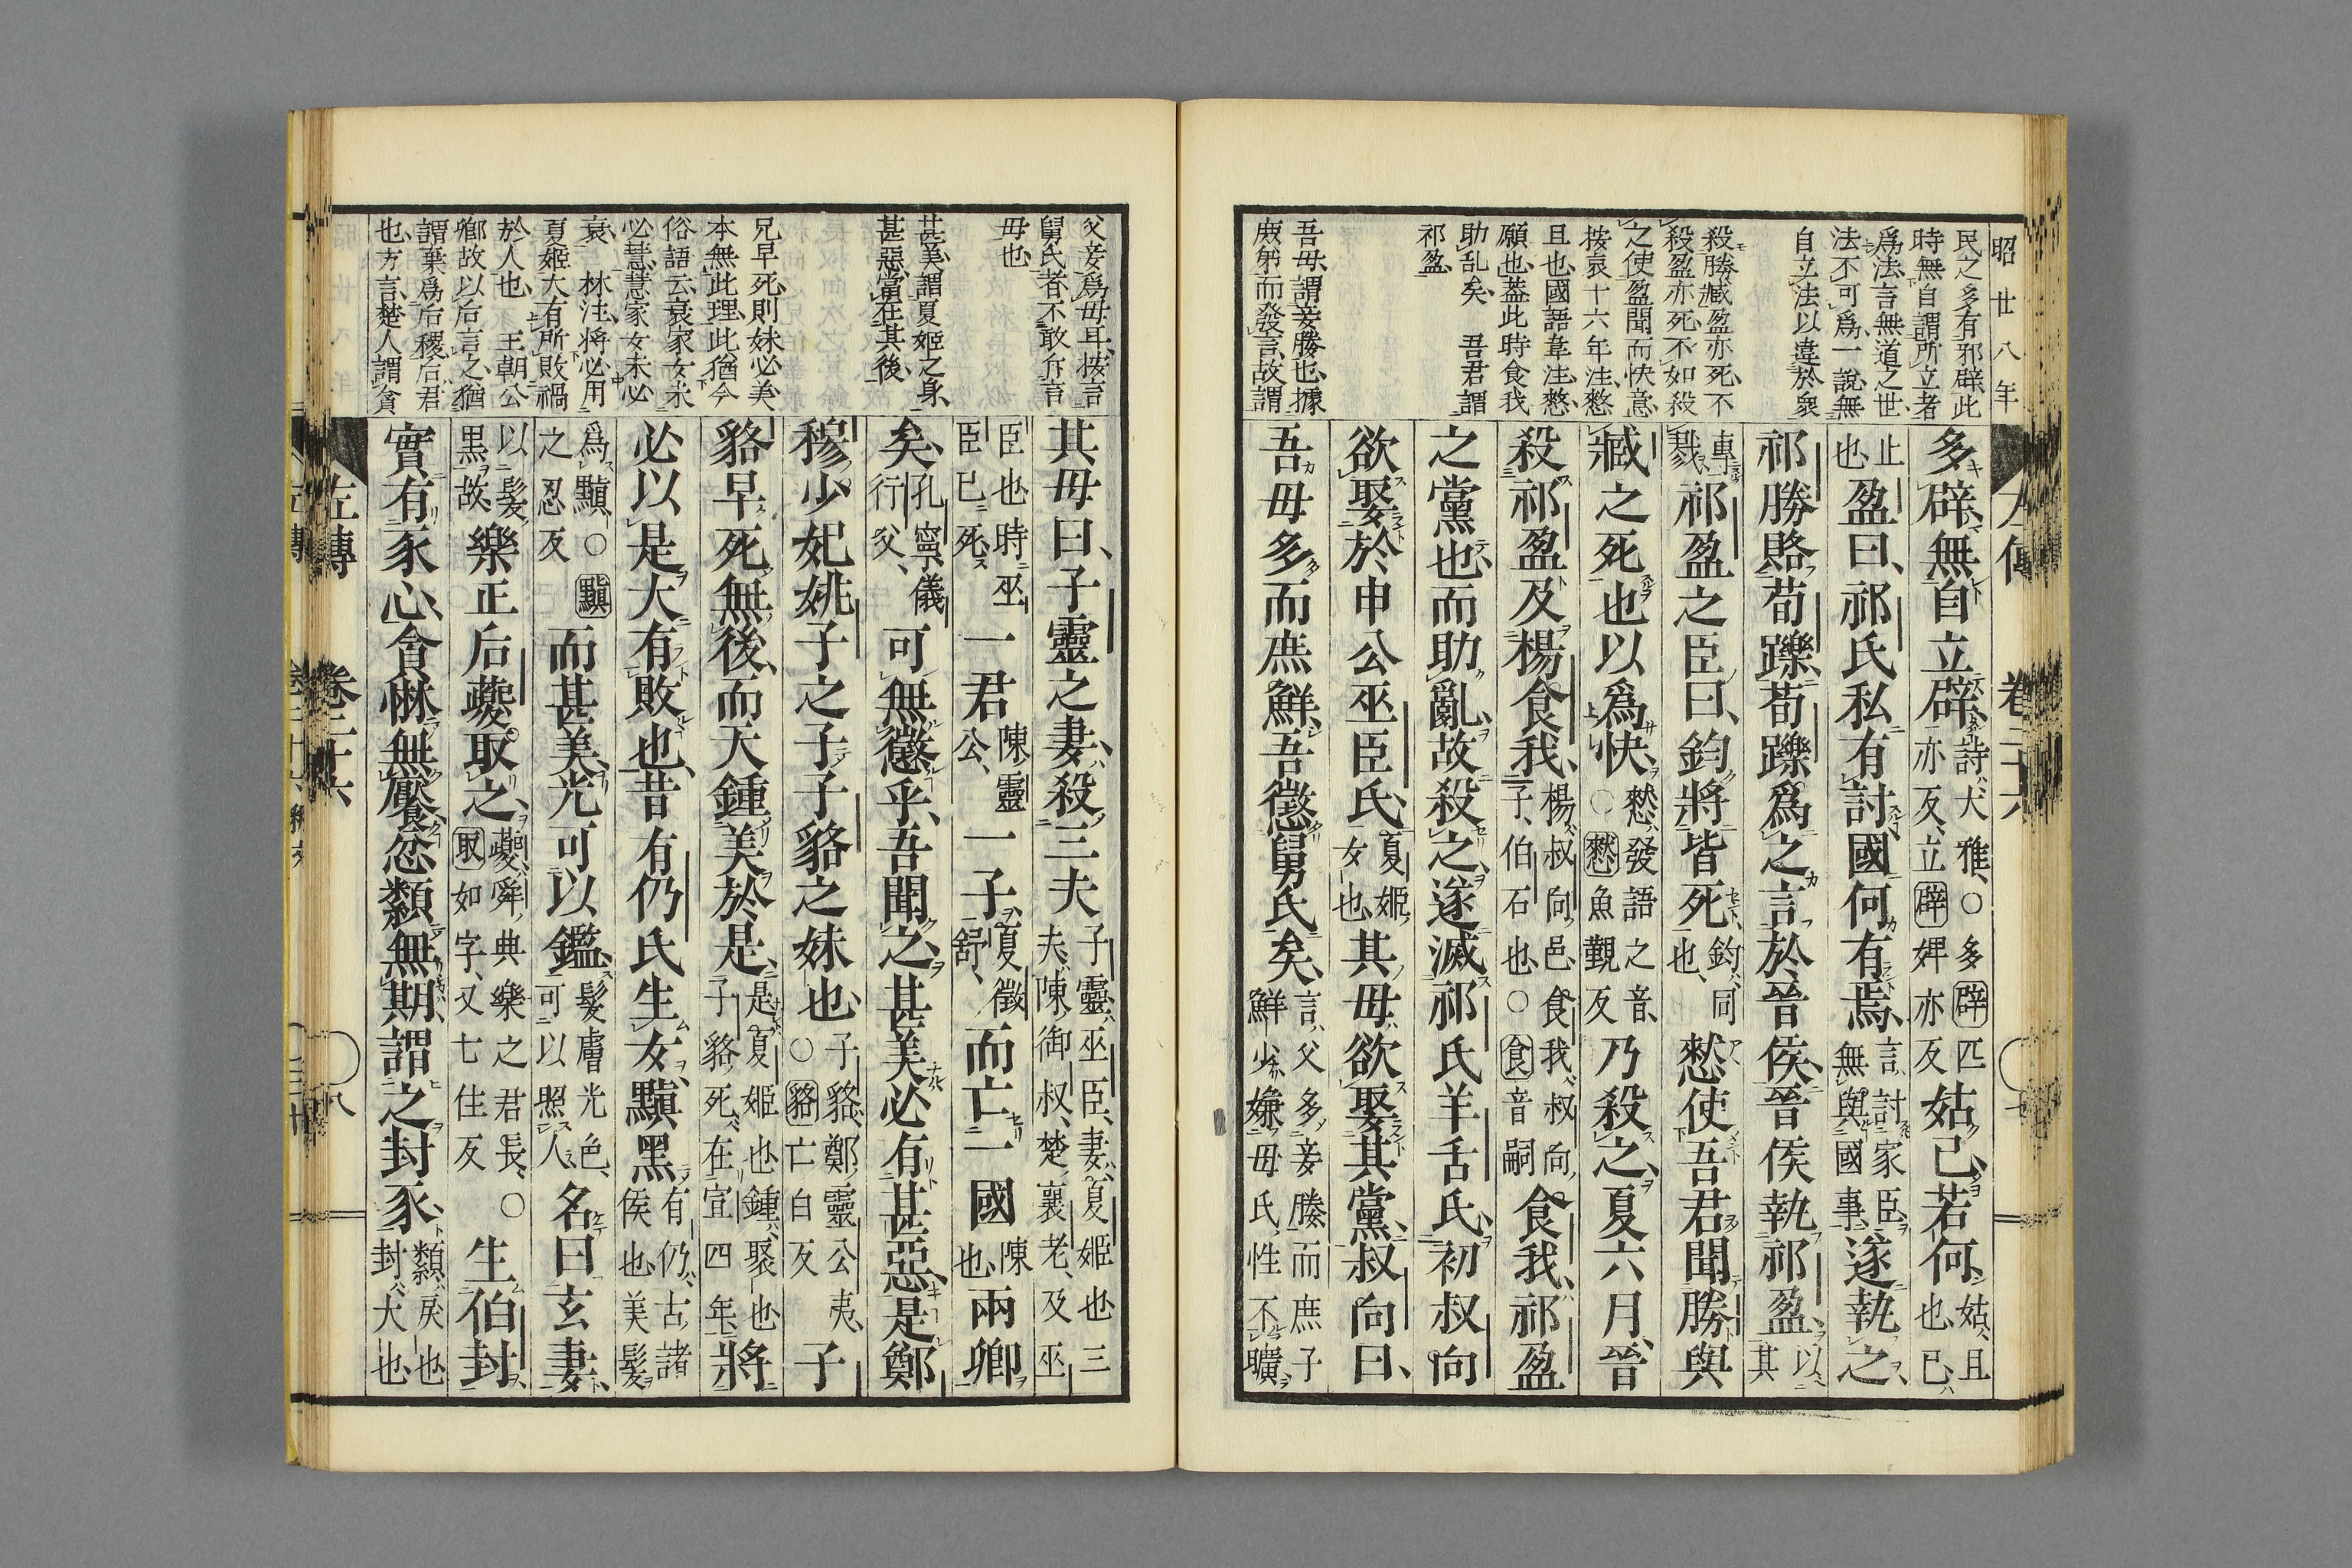 昭廿八年
民之多有邪辟此
時無自謂所立者
爲法言無道之世
法不可爲一說無
自立法以違於衆
殺勝臧盈亦死不
殺盈亦死不如殺
之使盈聞而快意
按哀十六年注憖
且也國語韋注憖
願也蓋此時食我
助乱矣 吾君謂
祁盈
吾母謂妾勝也據
庶舅而發言故謂
左傳 卷二十六
多辟無自立辟詩大雅○多辟匹亦反立辟婢亦反姑已若何姑且也已
止也盈曰祁氏私有討國何有焉言討家臣無與國事遂執之
祁勝賂荀躒荀躒爲之言於晉侯晉侯執祁盈以其
專戮祁盈之臣曰鈞將皆死鈞同也憖使吾君聞勝與
臧之死也以爲快憖發語之音○憖魚覲反乃殺之夏六月晉
殺祁盈及楊食我楊叔向邑食我叔向子伯石也○食音嗣食我祁盈
之黨也而助亂故殺之遂滅祁氏羊舌氏初叔向
欲娶於申公巫臣氏夏姬女也其母欲娶其黨叔向曰
吾母多而庶鮮吾懲舅氏矣言父多妾媵而庶子鮮少嫌母氏性不曠
父妾爲母耳按言
舅氏者不敢斥言
母也
甚美謂夏姬之身
甚惡當在其後
兄早死則妹必美
本無此理此猶今
俗語云衰家女未
必慧慧家女未必
衰 林注將必用
夏姬大有所敗禍
於人也 王朝公
鄉故以后言之猶
謂棄爲后稷后君
也方言楚人謂貪
其母曰子靈之妻殺三夫子靈巫臣妻夏姬也三夫陳御叔楚襄老及巫
臣也時巫臣已死一君陳靈公一子夏徵舒而亡一國陳也兩卿
矣孔寧儀行父可無懲乎吾聞之甚美必有甚惡是鄭
穆少妃姚子之子子貉之妹也子貉鄭靈公夷○貉亡白反子
貉早死無後而天鍾美於是是夏姬也鍾聚也子貉死在宣四年將
必以是大有敗也昔有仍氏生女黰黑有仍古諸侯也美髮
爲黰○黰之忍反而甚美光可以鑑髮膚光色可以照人名曰玄妻
以髮黒故樂正后夔取之夔舜典樂之君長○取如字又七住反生伯封
實有豕心貪惏無饜忿纇無期謂之封豕纇戾也封大也
左傳 卷二十六 八